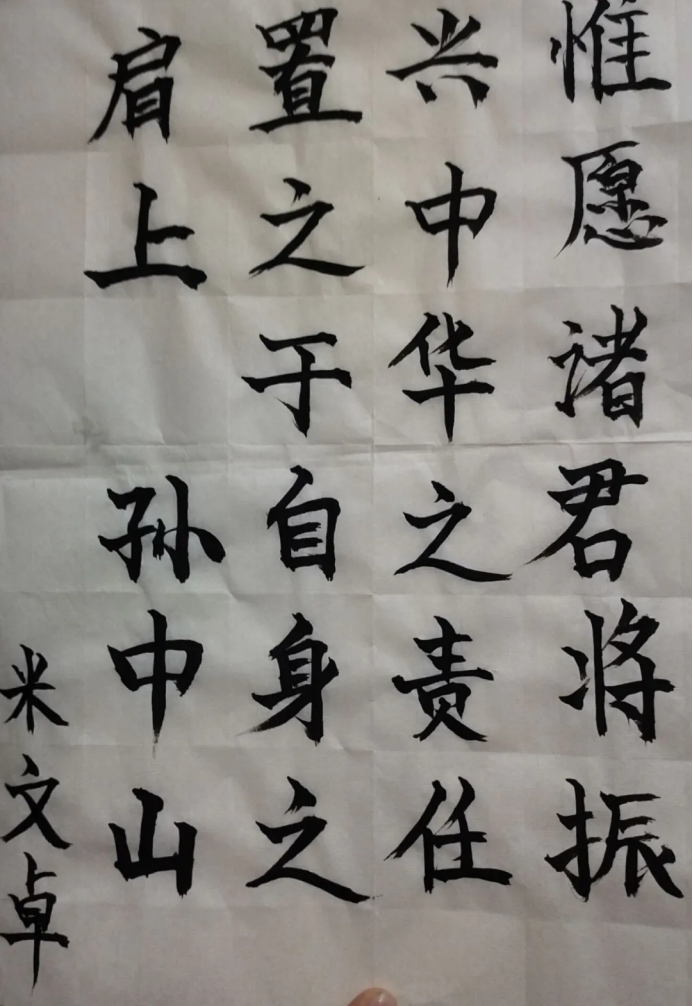 惟愿诸君将振
兴中华之责任
置之于自身之
肩上 孙中山
米文卓